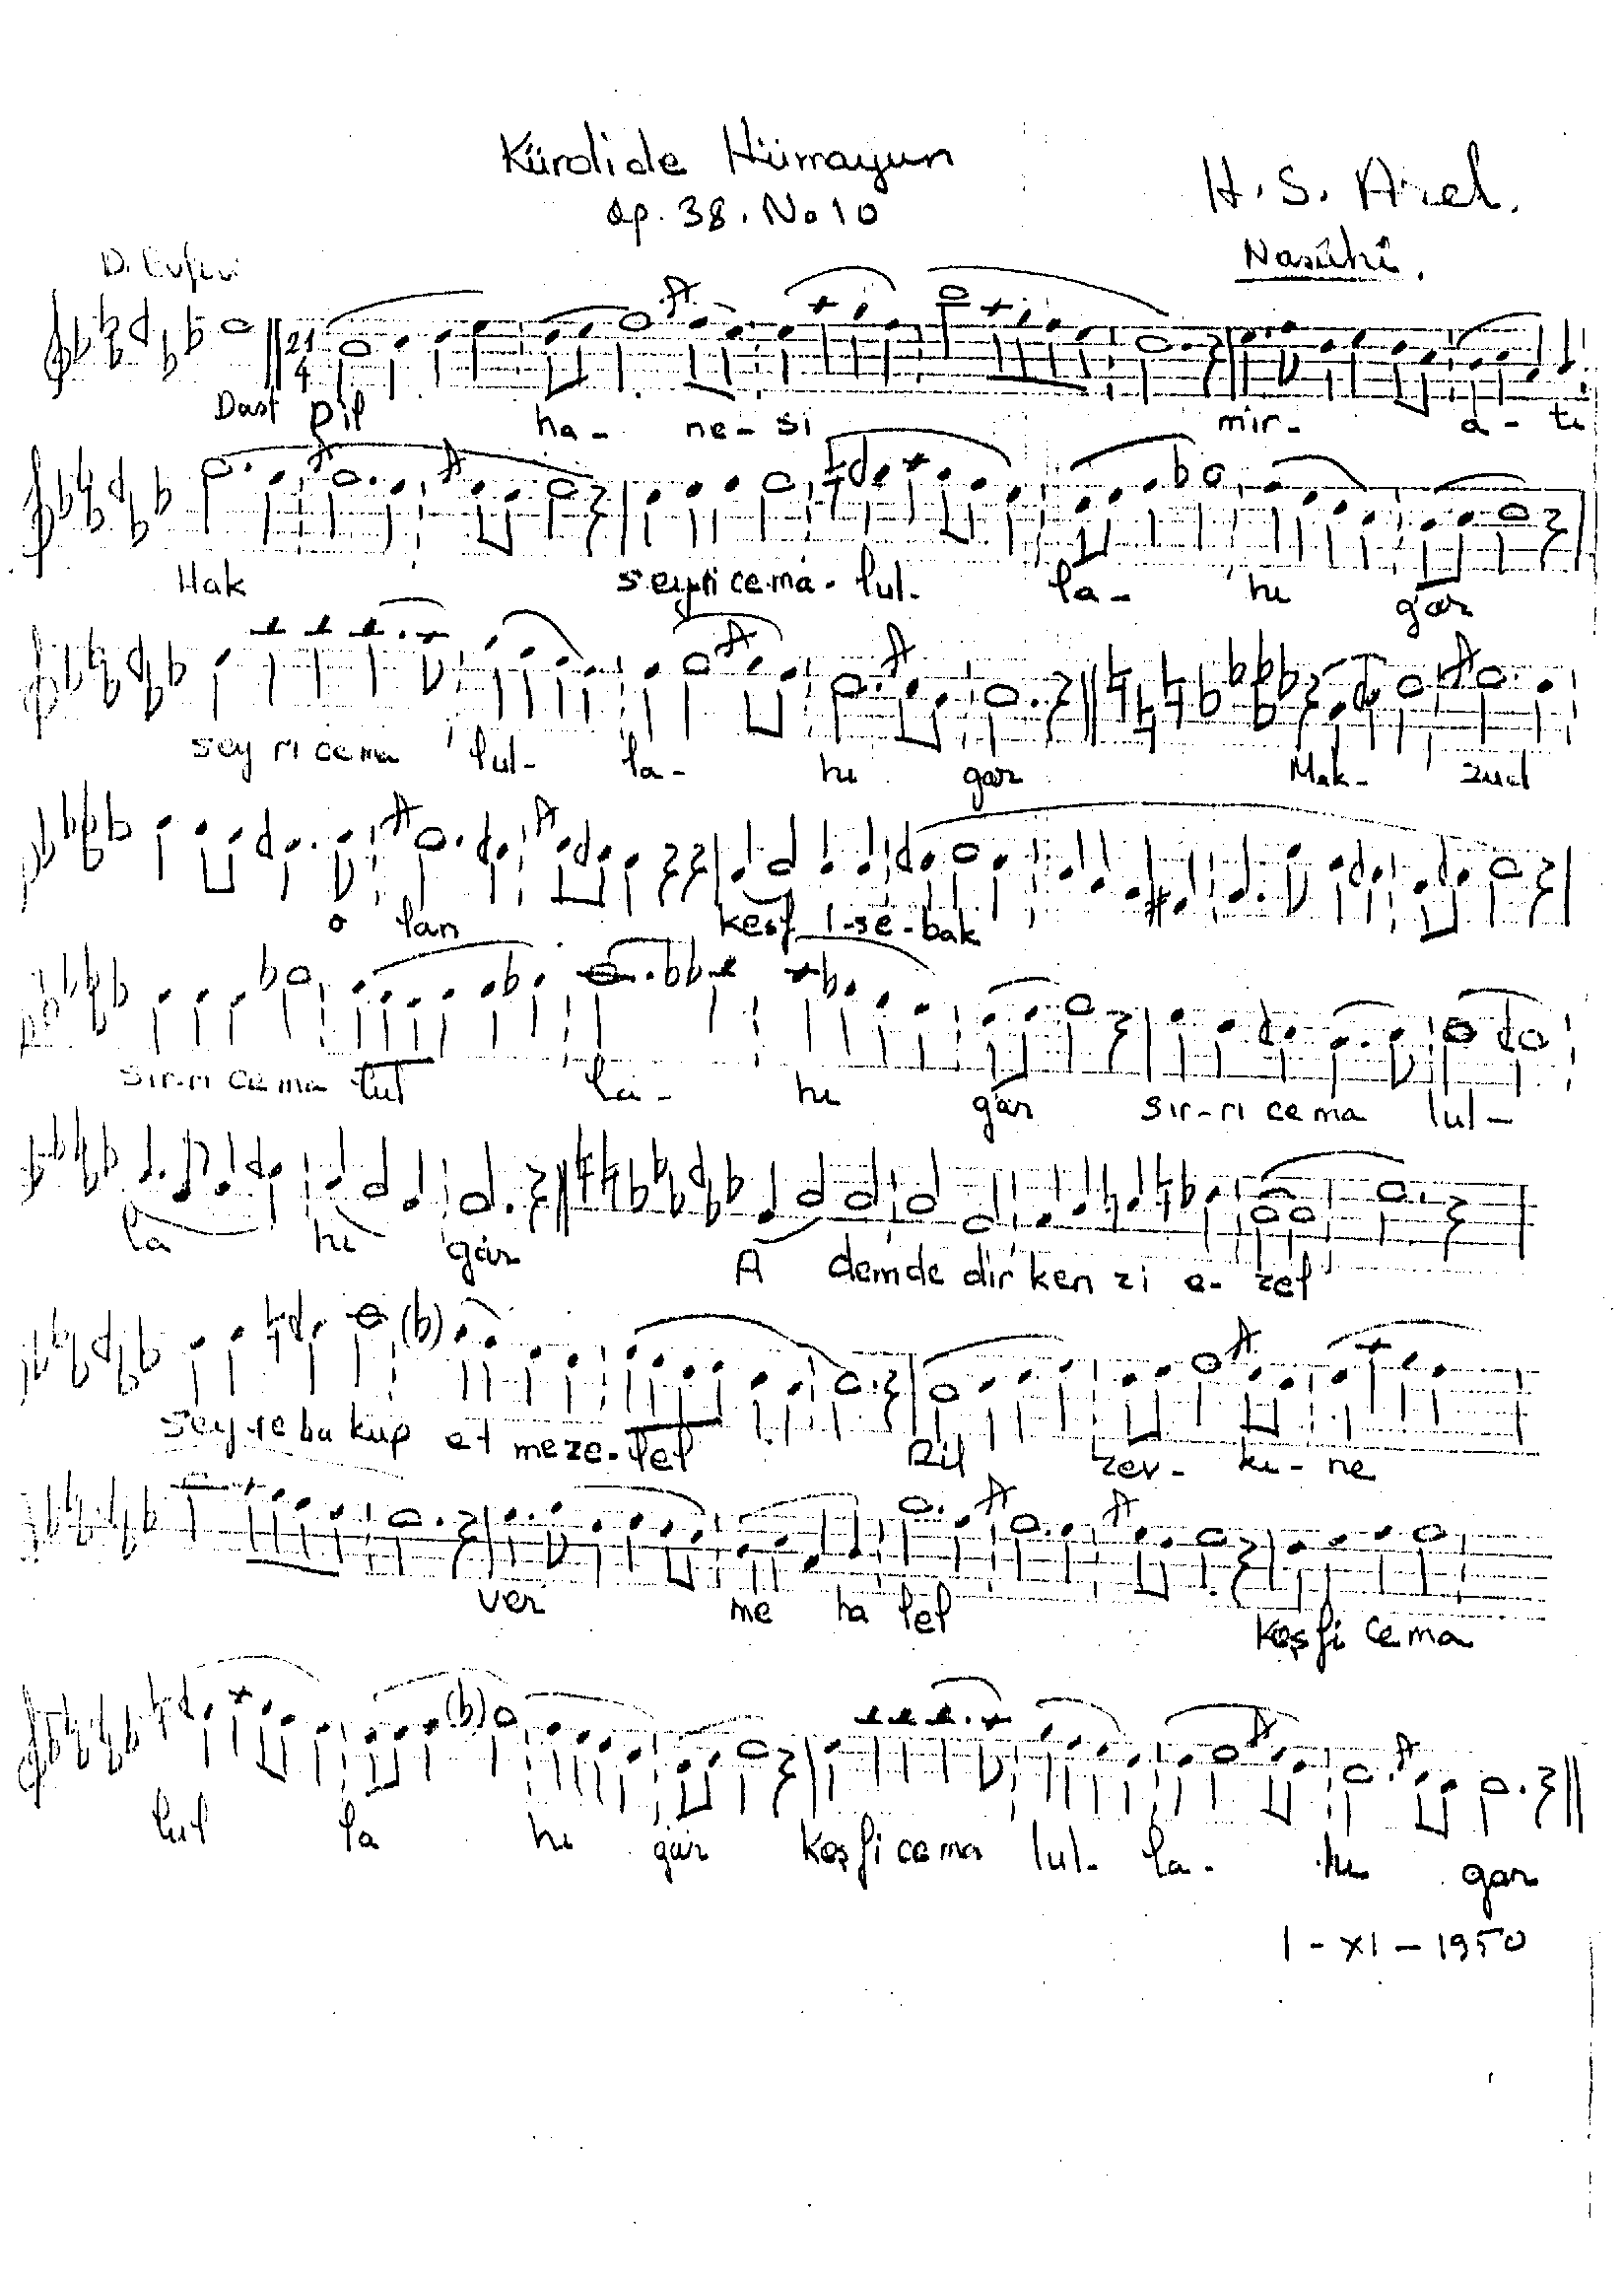 Kürdide Hümayun
op. 38. No 10
H. S. Arel.
Nasûhî.
D. Evferi
21
4
Dast Dil ha- ne- si mir- a- tı
Hak seyricema- lul- la- hı gâr
sey ri cema lul- la- hı gar Mak- zud
o lan keşf i-se-bak
sır-rı cema lul la- hı gâr sır-rı cema lul-
la hı gâr A demde dir ken zi e- zel
sey-re bakup et meze-lel Dil zev- kı- ne
ver me ha lel keşfi cema
lul la hı gâr keşfi cema lul- la- hı gar
1-XI-1950